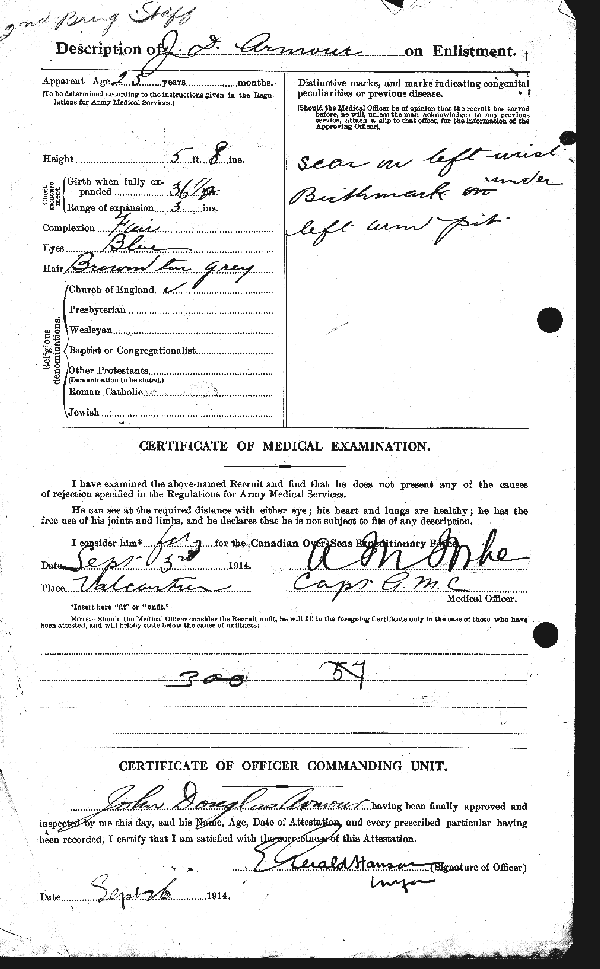 2nd Brig Staff
Description of J. D. Armour on Enlistment.
Apparent Age 25 years months.
(To be determined according to the instructions given in the Regulations for Army Medical Services.)
Height 5 ft. 8 ins.
Chest measurement
Girth when fully expanded 36½
Range of expansion 3 ins.
Complexion Fair
Eyes Blue
Hair Brown grey
Religious denominations.
Church of England ✓
Presbyterian
Wesleyan
Baptist or Congregationalist
Other Protestants
(Denomination to be stated.)
Roman Catholic
Jewish
Distinctive marks, and marks indicating congenital
peculiarities or previous disease.
(Should the Medical Officer be of opinion that the recruit has served
before, he will, unless the man acknowledges to any previous
service, attach a slip to that effect, for the information of the
Approving Officer).
Scar on left wrist
Birthmark on under
left arm pit
CERTIFICATE OF MEDICAL EXAMINATION.
I have examined the above-named Recruit and find that he does not present any of the causes
of rejection specified in the Regulations for Army Medical Services.
He can see at the required distance with either eye; his heart and lungs are healthy; he has the
free use of his joints and limbs, and he declares that he is not subject to fits of any description.
I consider him* for the Canadian Over-Seas Expeditionary Force.
Date Sept 3rd 1914.
Place Valcartier
Capt AMC
Medical Officer.
*Insert here "fit" or "unfit."
NOTE.—Should the Medical Officer consider the Recruit unfit, he will fill in the foregoing Certificate only in the case of those who have
been attested, and will briefly state below the cause of unfitness:—
300 57
CERTIFICATE OF OFFICER COMMANDING UNIT.
John Douglas Armour having been finally approved and
inspected by me this day, and his Name, Age, Date of Attestation, and every prescribed particular having
been recorded, I certify that I am satisfied with the correctness of this Attestation.
E Gerald Hanson (Signature of Officer)
Major
Date Sept 26 1914.